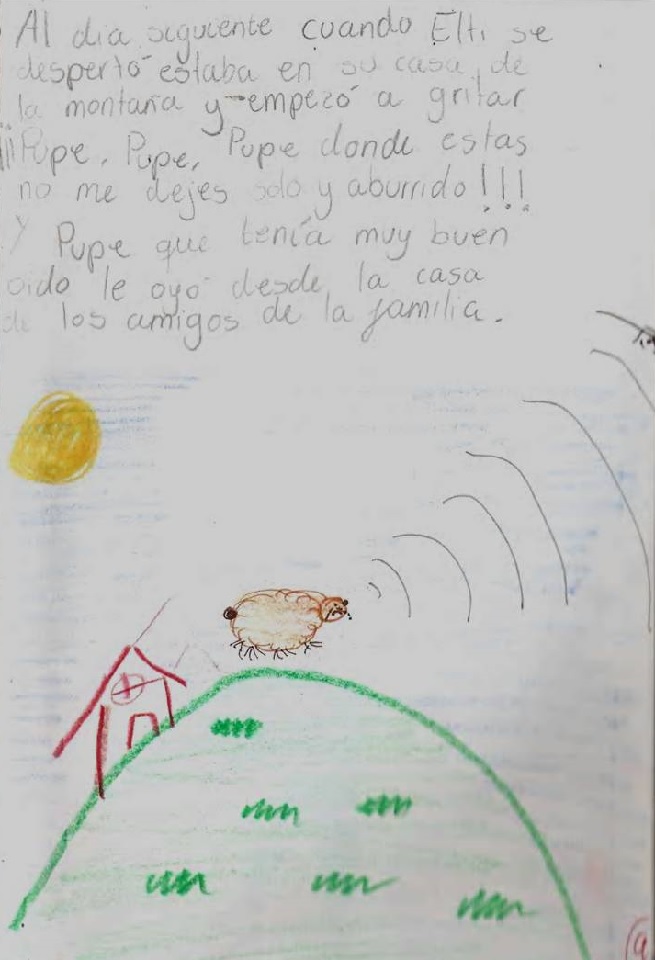 Al dia siguiente cuando Elti se
despertó estaba en su casa de
la montaña y empezó a gritar
¡¡¡Pupe, Pupe, Pupe donde estas
no me dejes solo y aburrido!!!
Y Pupe que tenía muy buen
oido le oyó desde la casa
de los amigos de la familia.